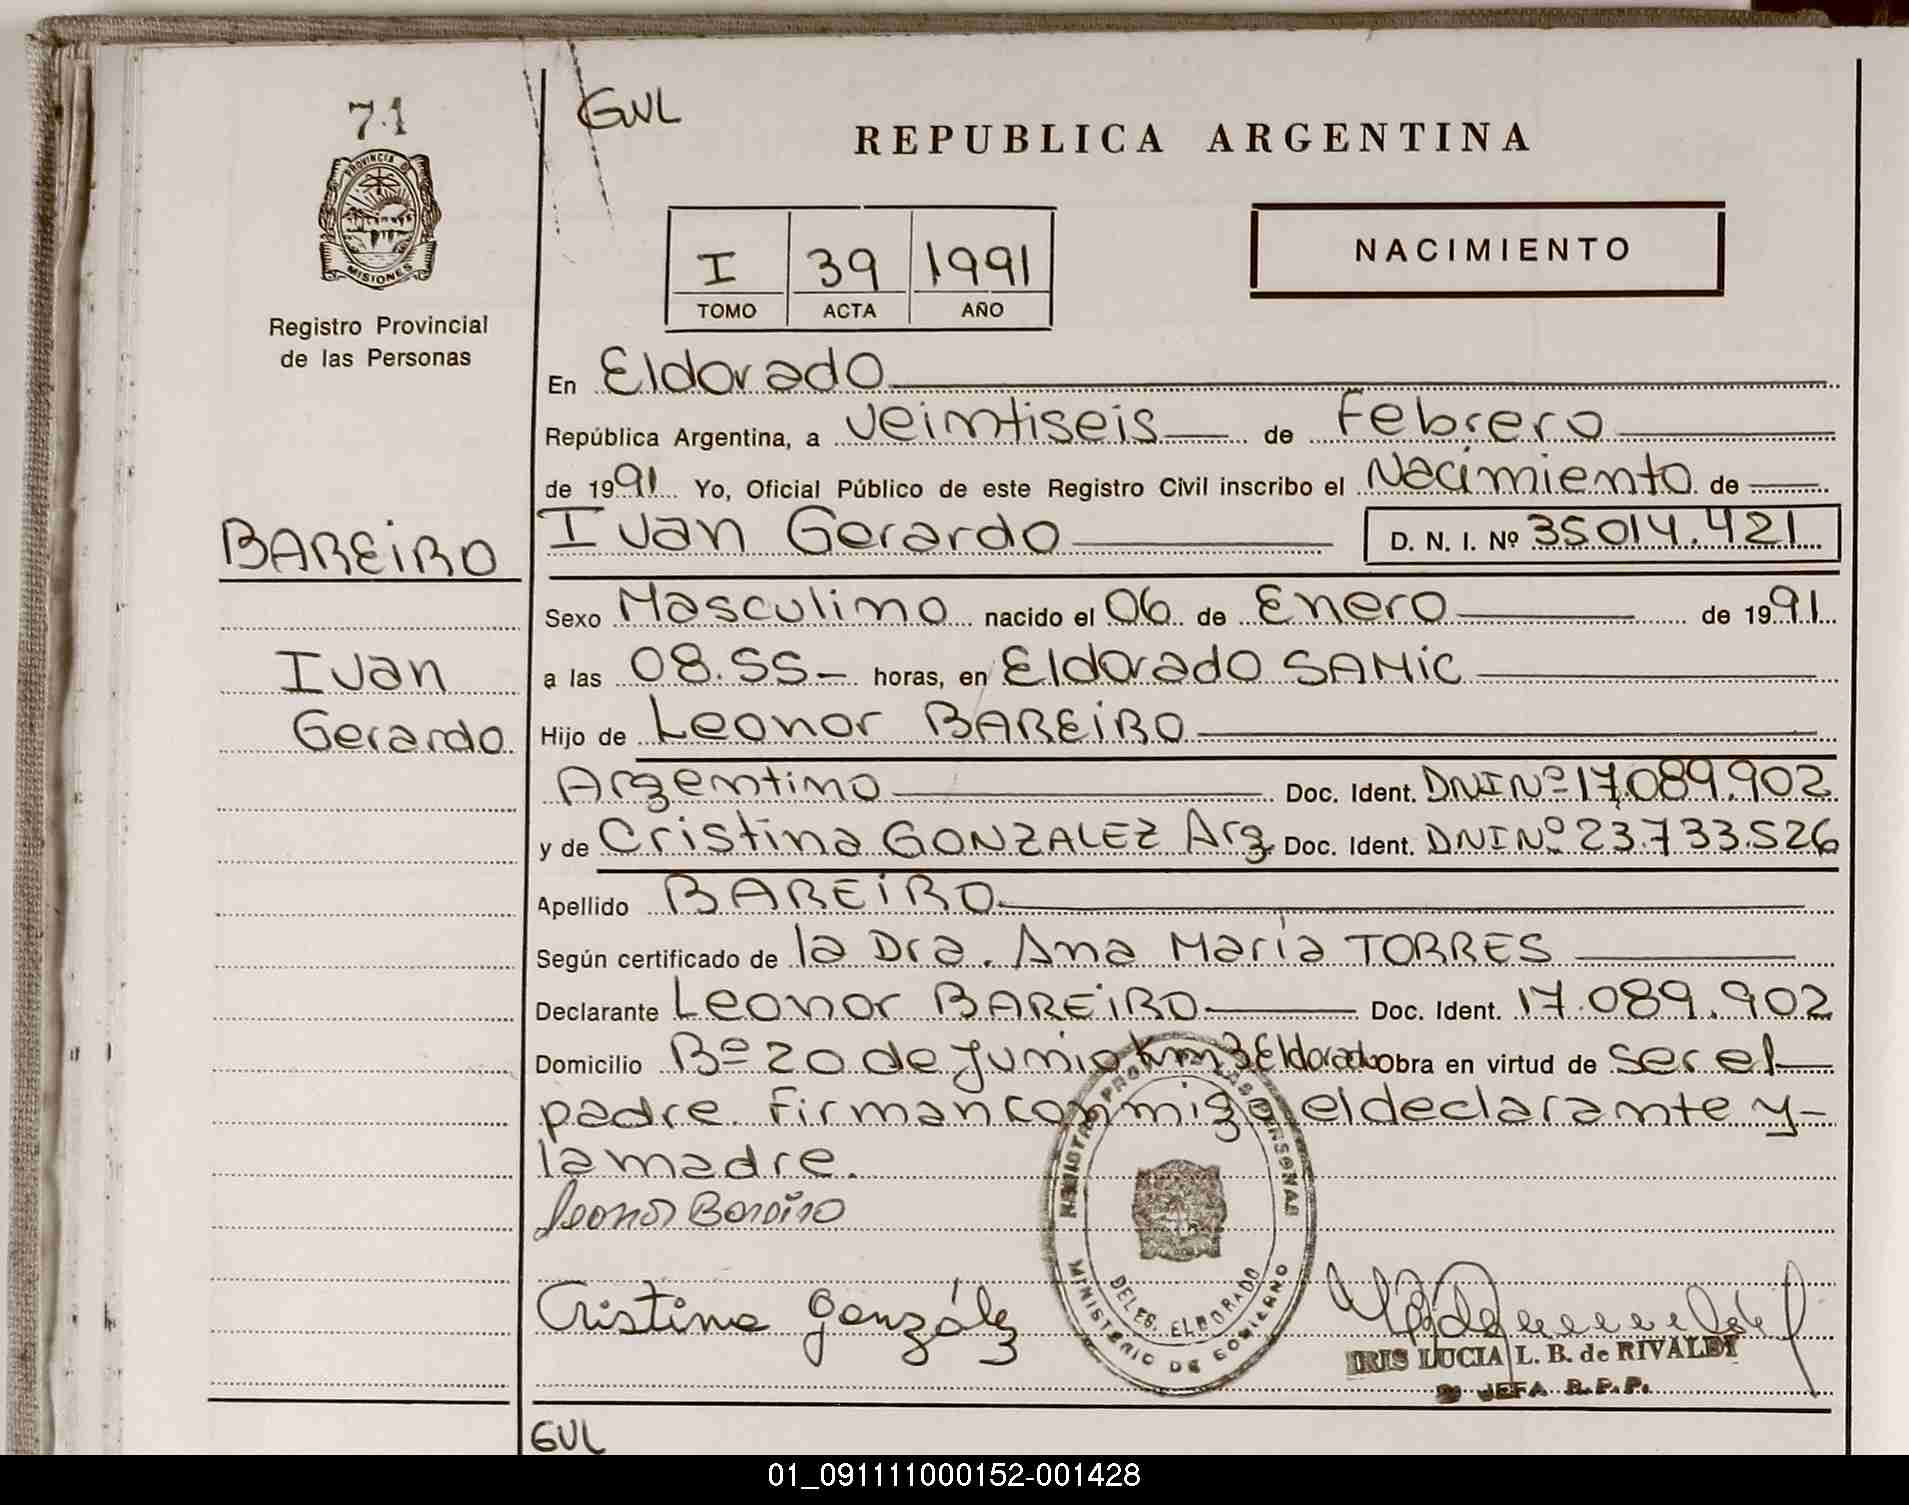 71
GUL
REPUBLICA ARGENTINA
PROVINCIA DE
MISIONES
Registro Provincial
de las Personas
I 39 1991
TOMO ACTA AÑO
NACIMIENTO
En Eldorado
República Argentina, a veintiseis de Febrero
de 1991 Yo, Oficial Público de este Registro Civil inscribo el Nacimiento de
BAREIRO
Ivan Gerardo D. N. I. Nº 35014.421
Sexo Masculino nacido el 06 de Enero de 1991
Ivan
a las 08.55 horas, en Eldorado SAMIC
Gerardo
Hijo de Leonor BAREIRO
Argentino Doc. Ident. DNI Nº 17.089.902
y de Cristina GONZALEZ Arg. Doc. Ident. DNI Nº 23.733.526
Apellido BAREIRO
Según certificado de la Dra. Ana María TORRES
Declarante Leonor BAREIRO Doc. Ident. 17.089.902
Domicilio Bº 20 de Junio km 3 Eldorado Obra en virtud de ser el
padre. Firman conmigo el declarante y
la madre.
Leonor Bareiro
Cristina González
MINISTERIO DE GOBIERNO
DEL ES. ELDORADO
IRIS LUCIA L. B. de RIVALDI
JEFA R.P.P.
GUL
01_091111000152-001428